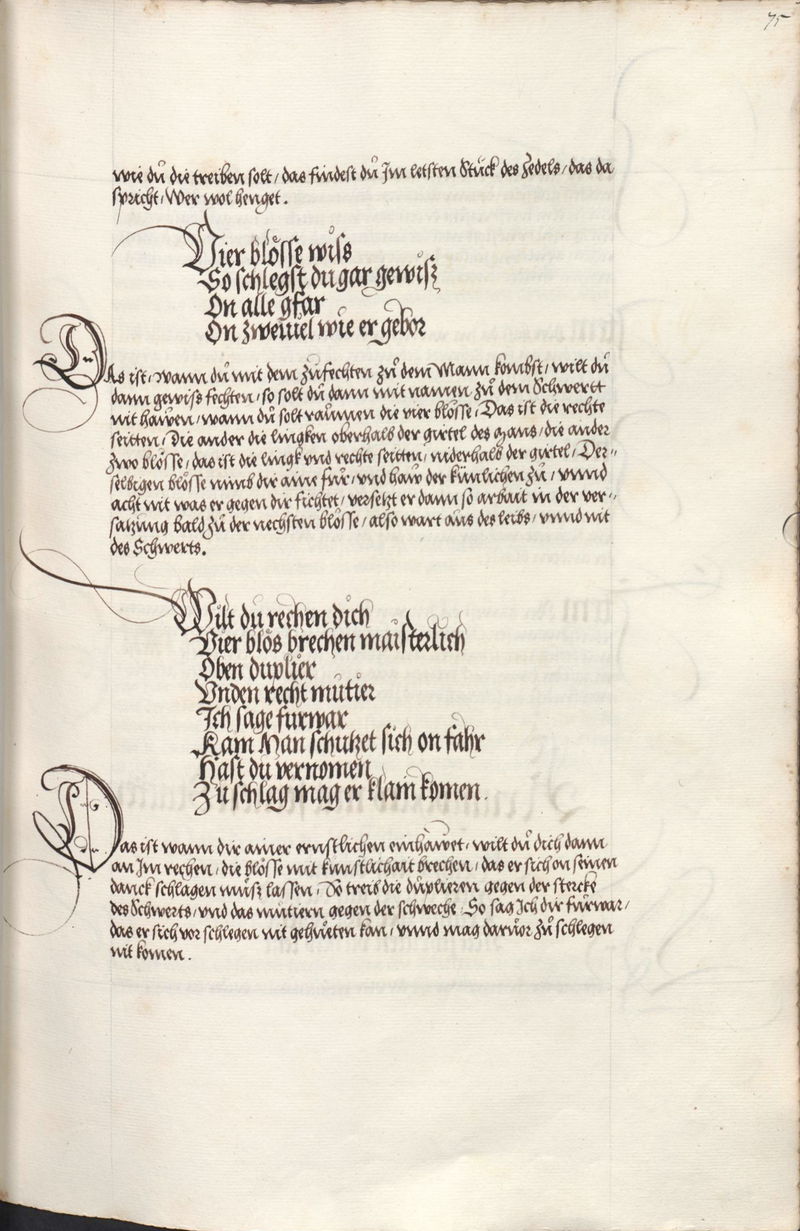 75
wie dů die treiben solt / das findest dů Im letsten Stůck des Zedels / das da
spricht / Wer wol henget .
Vier blösse wiss
So schlegst du gar gewisz
On alle gfar
On zweiuel wie er gebor
DAs ist / wann dů mit dem Zůfechten zů dem Mann kombst / wilt dů
dann gewiss fechten / so solt dů dann mit namen zů dem Schwertt
nit hawen / wann dů solt raůmen die vier blösse / Das ist die rechte
seitten / Die ander die lingken oberhalb der gürtel des Mans / die ander
zwo blösse / das ist die lingk vnd rechte seitten / niderhalb der gürtel / Der-
selbigen blösse nimb dir aine für / vnd haw der künlichen zů / vnnd
acht nit was er gegen dir fichtet / versetzt er dann so arbait in der ver-
satzung bald zů der nechsten blösse / also wart aus des leibs / vnnd nit
des Schwerts .
Wilt du rechen dich
Vier blös brechen maisterlich
Oben duplier
Vnden recht mutier
Ich sage furwar
Kam Man schutzet sich on fahr
Hast du vernomen
Zu schlag mag er klam komen .
Das ist wann dir ainer ernstlichen einhawet / wilt dů dich dann
an Im rechen / die blösse mit kunstlichait brechen / das er sich on seinen
danck schlagen můsz lassen / So treib die důplieren gegen der stercke
des Schwerts / vnd das mutiern gegen der schweche / So sag Ich dir fürwar /
das er sich vor schlegen nit gehueten kan / vnnd mag daruor zů schlegen
nit komen .